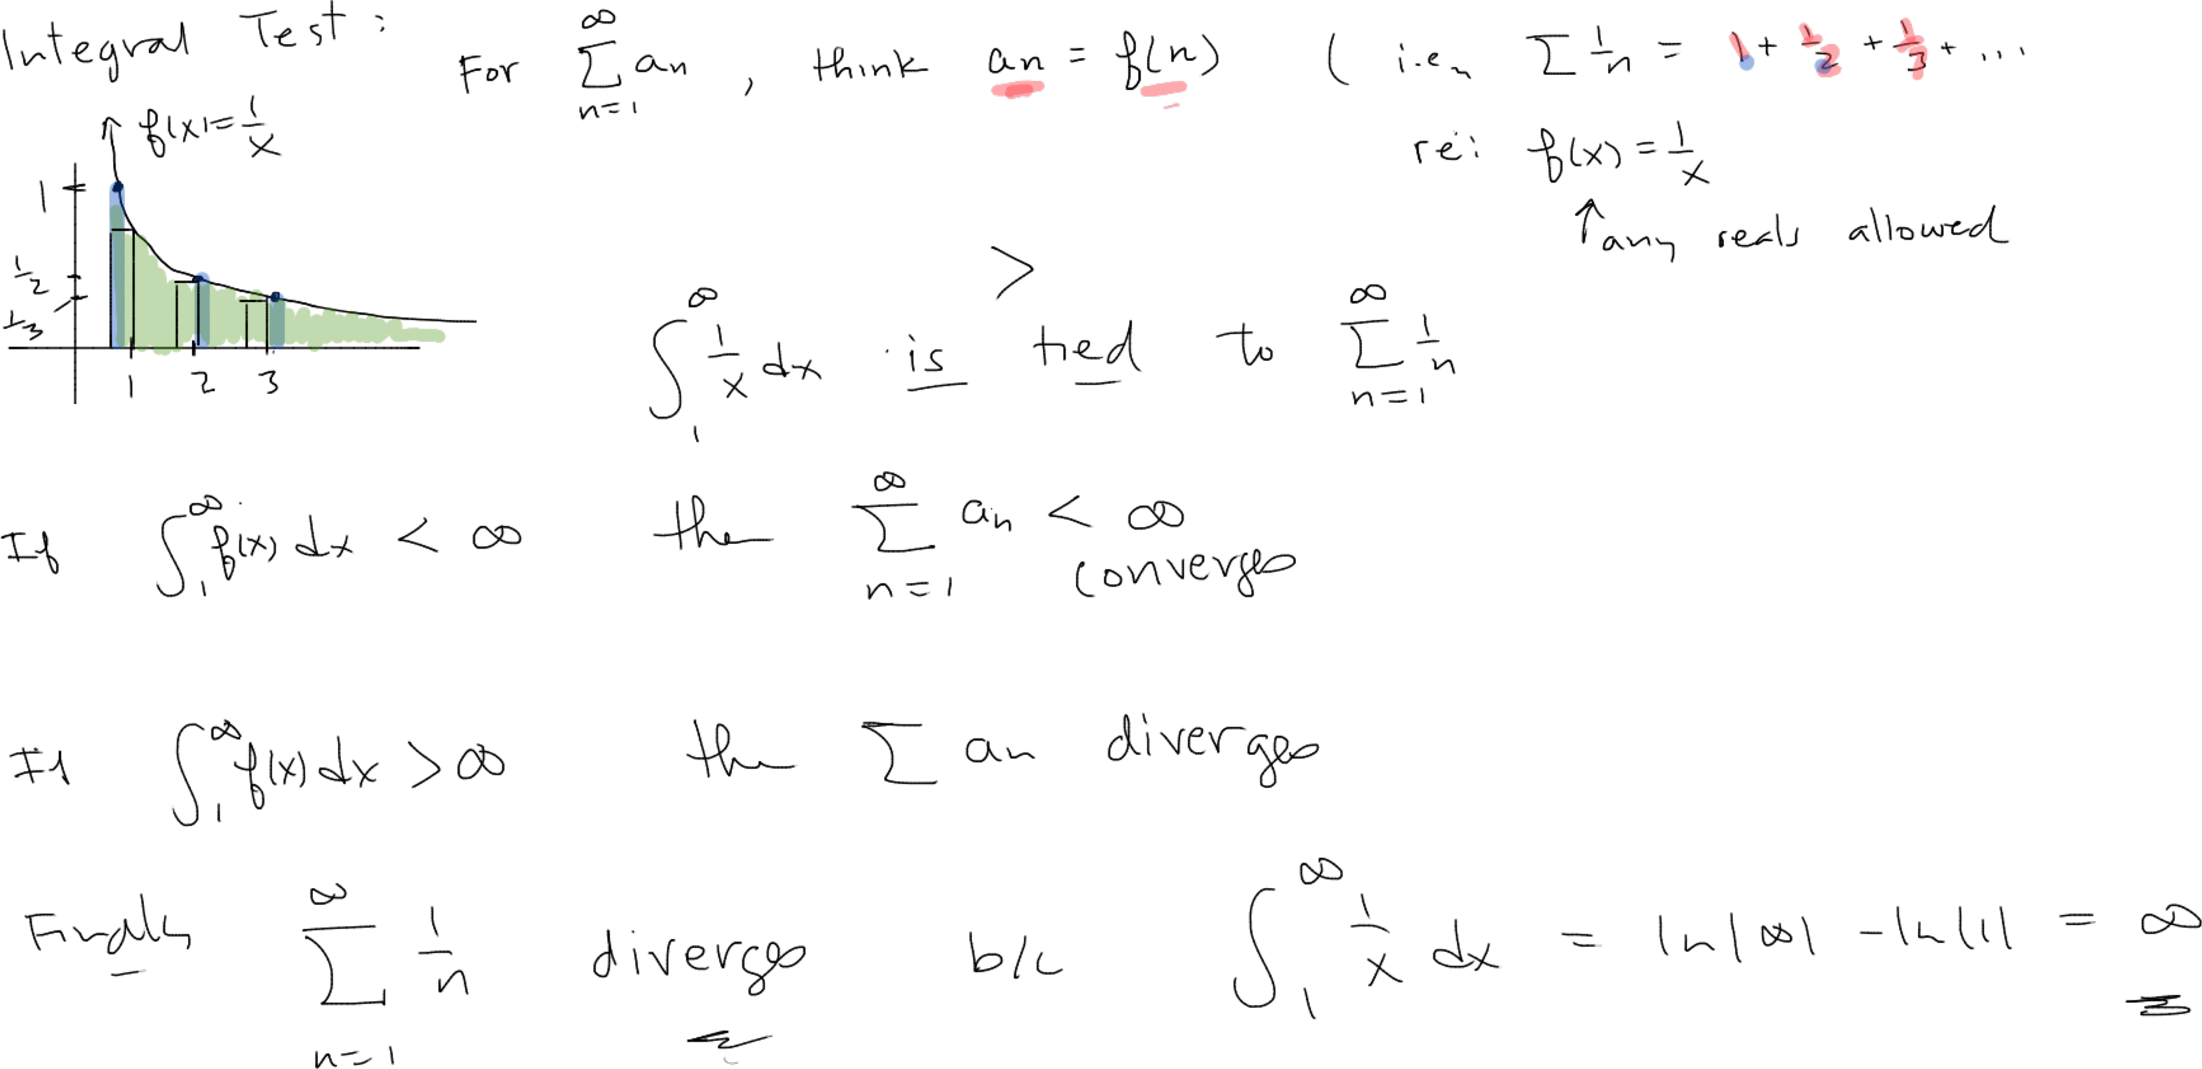 Integral Test: For ∑_{n=1}^{∞} an , think an = f(n) ( i.e., ∑ 1/n = 1 + 1/2 + 1/3 + ...
f(x) = 1/x
re: f(x) = 1/x
↑ any reals allowed
1
1/2
1/3
1 2 3
>
∫_1^∞ 1/x dx is tied to ∑_{n=1}^{∞} 1/n
If ∫_1^∞ f(x) dx < ∞ then ∑_{n=1}^{∞} an < ∞
converges
If ∫_1^∞ f(x) dx > ∞ then ∑ an diverges
Finally ∑_{n=1}^{∞} 1/n diverges b/c ∫_1^∞ 1/x dx = ln|∞| - ln|1| = ∞